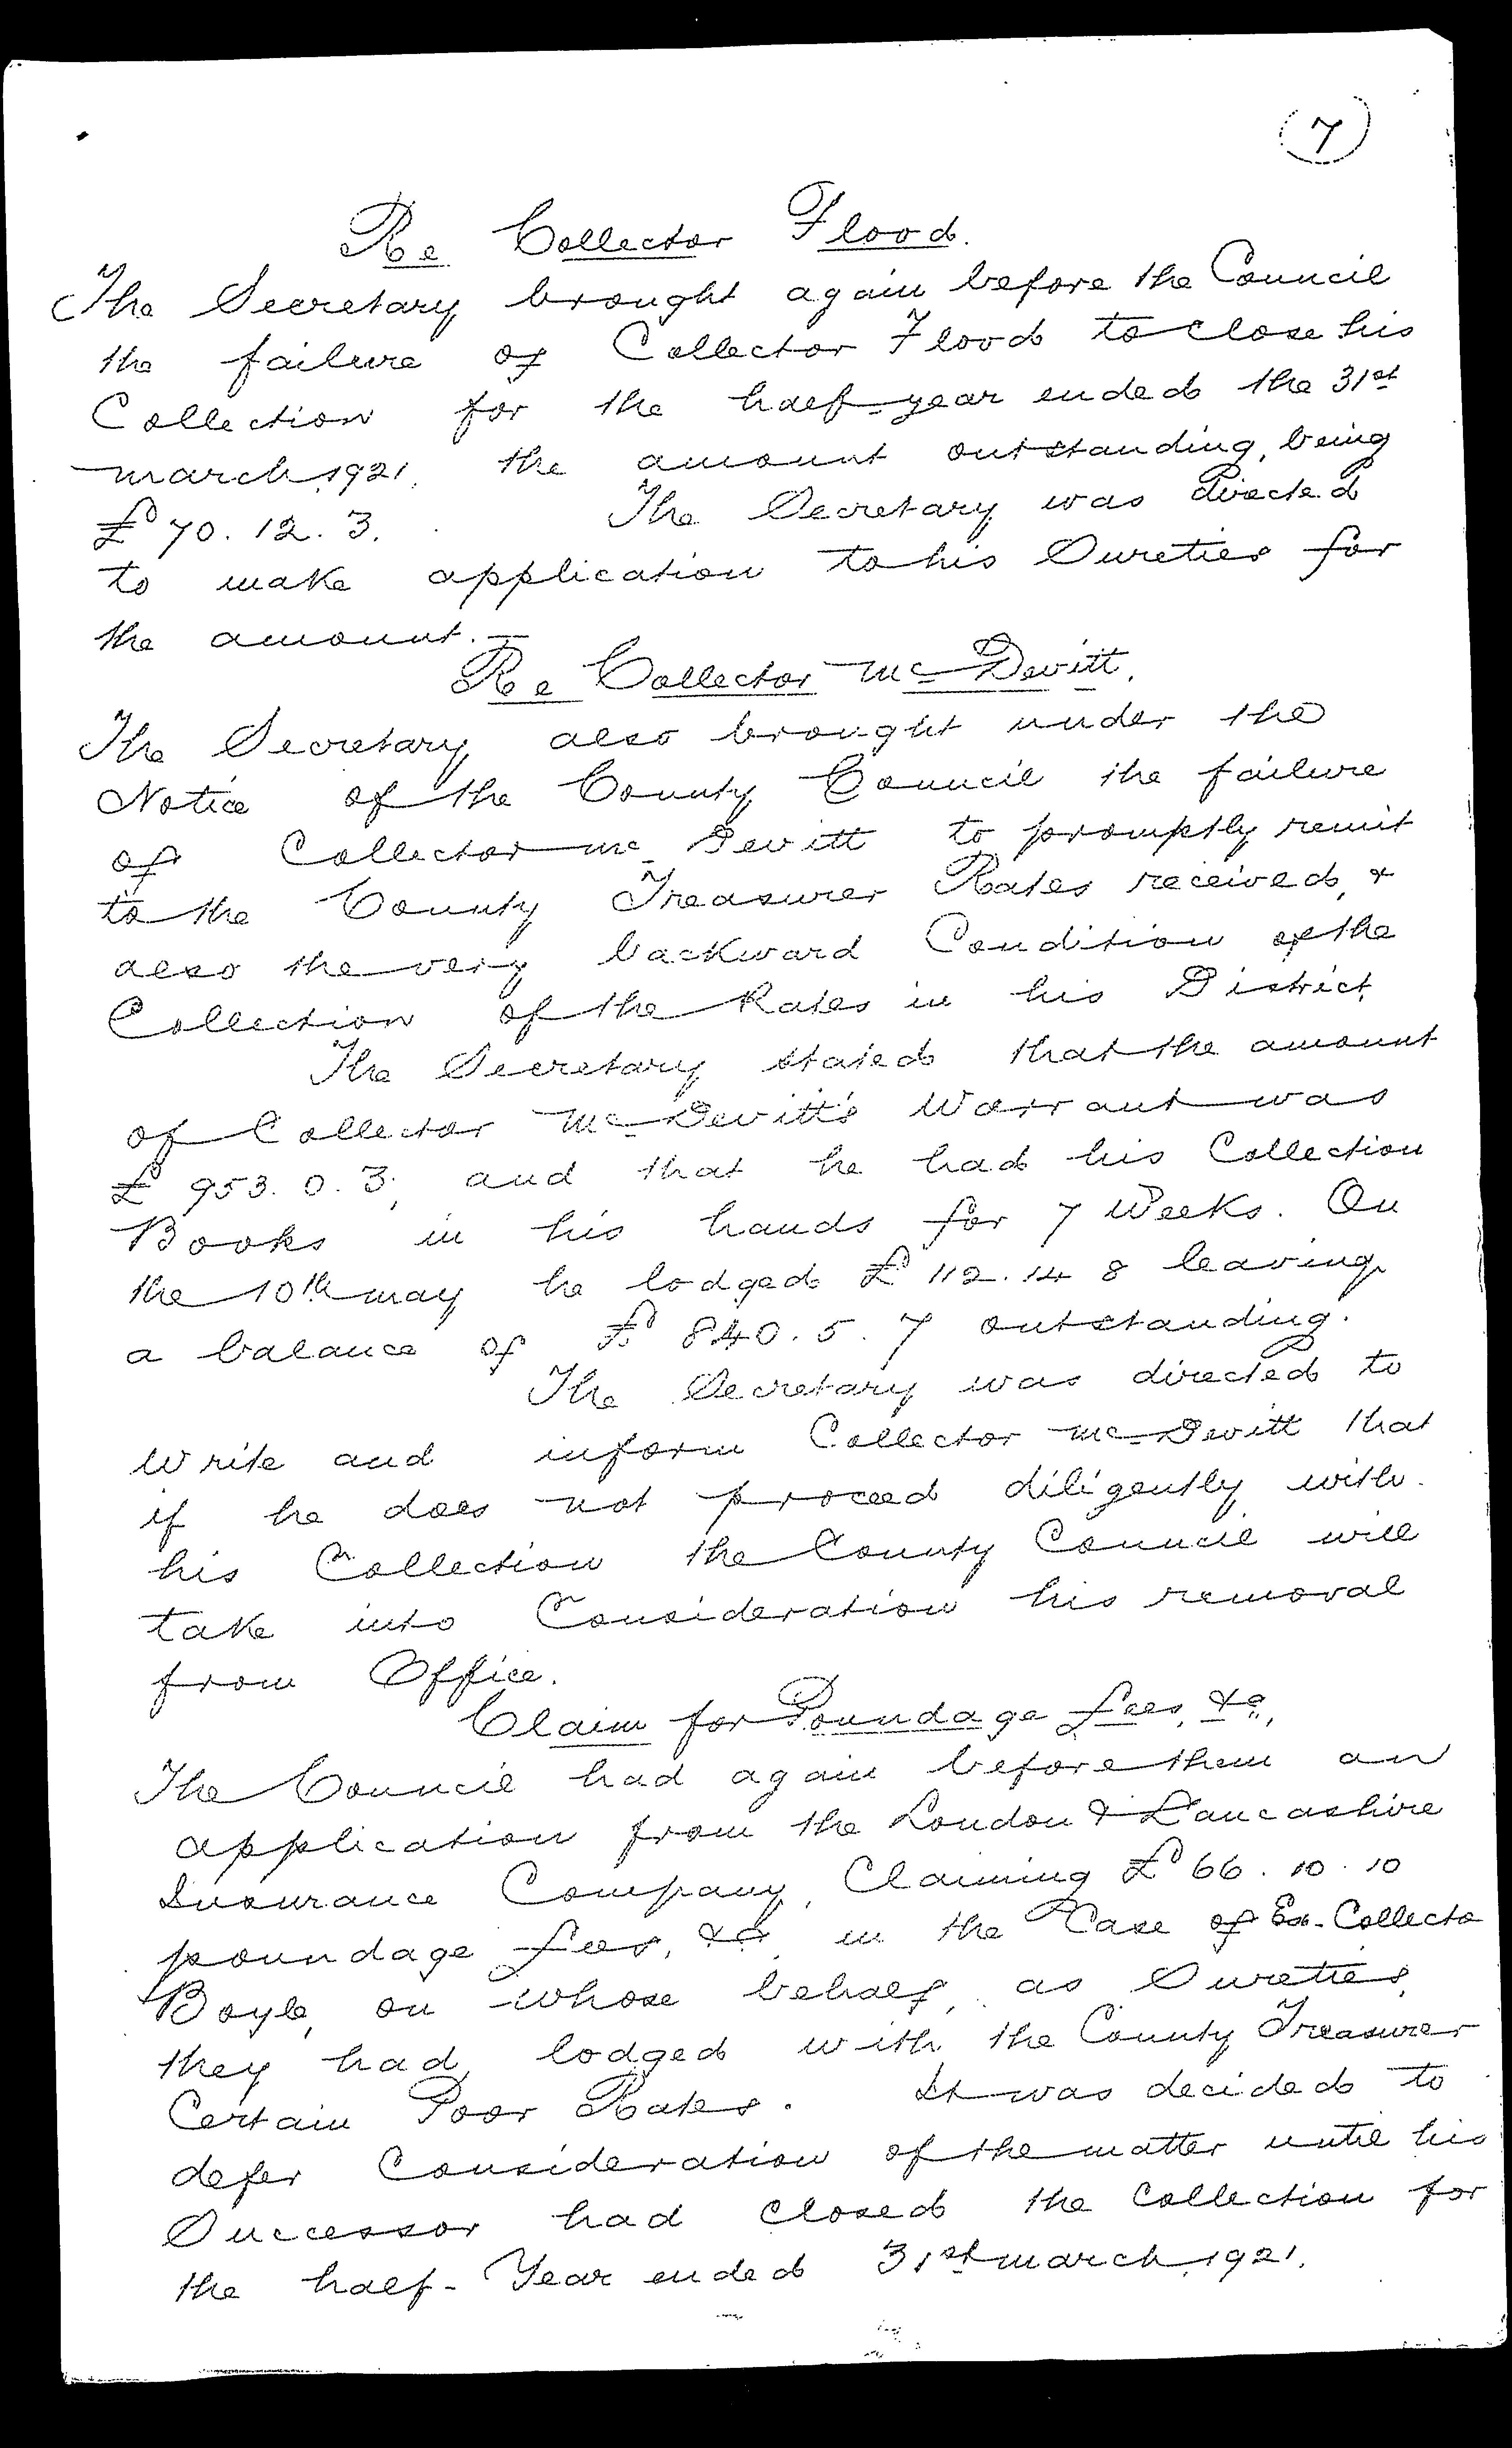 7
Re Collector Flood.
The Secretary brought again before the Council
the failure of Collector Flood to close his
Collection for the half-year ended the 31st
march, 1921, the amount outstanding, being
£70. 12. 3. The Secretary was directed
to make application to his Sureties for
the amount. —
Re Collector McDevitt.
The Secretary also brought under the
Notice of the County Council the failure
of Collector McDevitt to promptly remit
to the County Treasurer Rates received, &
also the very backward Condition of the
Collection of the Rates in his District.
The Secretary stated that the amount
of Collector McDevitt's Warrant was
£ 953. 0. 3, and that he had his Collection
Books in his hands for 7 Weeks. On
the 10th may he lodged £ 112. 14 8 leaving
a balance of £ 840. 5. 7 outstanding.
The Secretary was directed to
Write and inform Collector McDevitt that
if he does not proceed diligently with
his Collection the County Council will
take into Consideration his removal
from Office.
Claim for Poundage fees, &c.,
The Council had again before them an
application from the London & Lancashire
Insurance Company, Claiming £66. 10. 10
poundage fees, &c, in the Case of Ex-Collecto
Boyle, on whose behalf, as Sureties,
they had, lodged with the County Treasurer
Certain Poor Rates. It was decided to
defer Consideration of the matter until his
Successor had closed the Collection for
the half-Year ended 31st march, 1921.